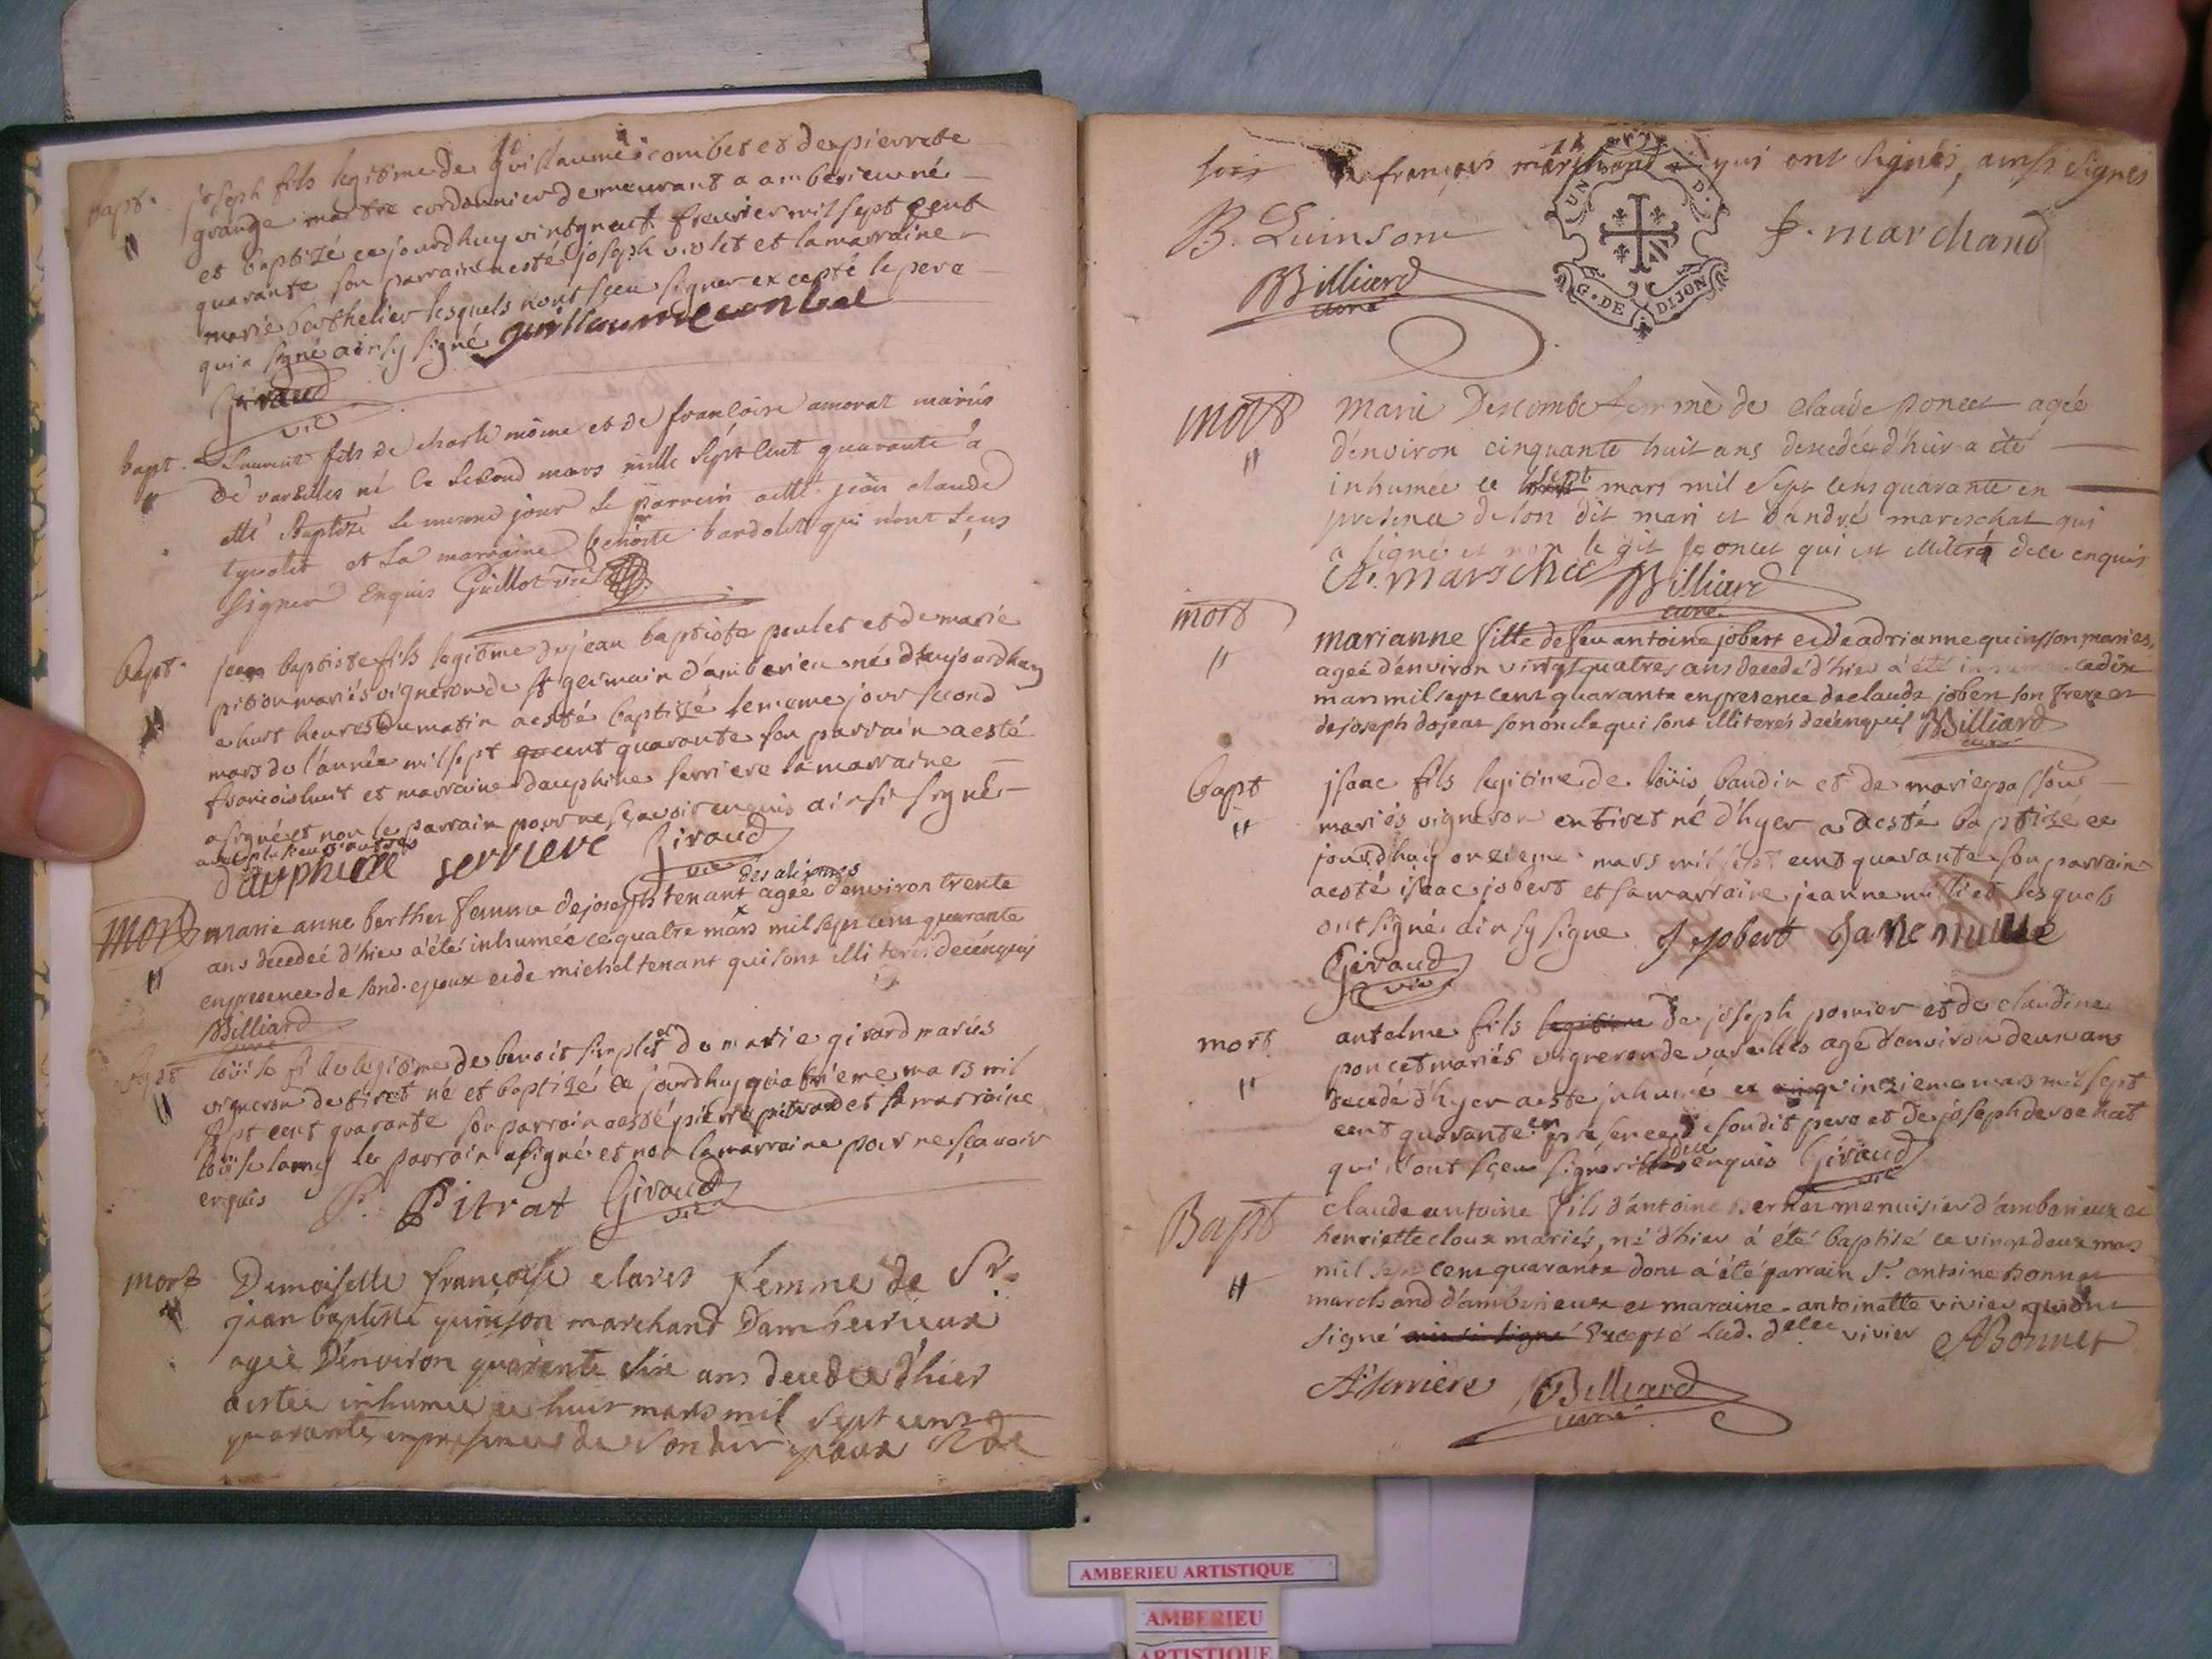 bapt. joseph fils legitime de guillaume combet et de pierrete
grange maitre cordonnier demeurant a amberieu né
et baptizé ce jourdhuy vintgneuf freuvier mil sept cent
quarante son parrain aesté joseph violet et la marraine
marie berthelier lesquels nont sceu signer excepté le pere
qui a signé ainsy signé guillaume conbet
Giraud
vic
bapt. Laurent fils de charle moine et de francoise amorat mariés
de vareilles né le second mars mille sept cent quarante a
etté Baptizé le meme jour le parrein a etté jean claude
et la marraine benoite bardolet qui n'ont sçus
signer Enquis Guillot vic
bapt. jean baptiste fils legitime de jean baptiste poulet et de marie
pition mariés vigneron de st germain d'amberieu né d'aujourdhuy
a huit heures du matin aesté baptizé le meme jour second
mars de l'année mil sept cent quarante son parrain aesté
francois huit et marraine dauphine serriere la marraine
a signé et non le parrain pour ne sçavoir enquis ainsi signé
avec plusieurs autres
dauphine serriere Giraud
vic
des alimes
mort marie anne berthet femme de joseph tenant agée d'environ trente
ans decedeé d'hier a été inhumée ce quatre mars mil sept cent quarante
en presence de sond. epoux et de michel tenant qui sont illiterés de ce enquis
Billiard
curé
bapt loüise fille legitime de benoit simplet et de marie girard mariés
vigneron de tiret né et baptizé ce jourdhuy quatrieme mars mil
sept cent quarante son parrain aesté pierre pitrat et sa marraine
loüise lamy le parrain a signé et non la marraine pour ne sçavoir
enquis P. Pitrat Giraud
vic
mort Demoiselle françoise clares femme de Sr.
jean baptiste quinson marchand Damberieux
agée D'environ quarante six ans decedée d'hier
a estée inhumée ce huit mars mil sept cens
quarante en presence de son dit epoux et de
sieur françois marchand qui ont signés, ainsi signés
UN G. DE DIJON
B. Quinson f. marchand
Billiard
curé
mort Marie Descombe femme de claude poncet agée
d'environ cinquante huit ans decedée d'hier a été
inhumée le sept mars mil sept cens quarante en
presence de son dit mari et d'andré mareschal qui
a signé et non le dit poncet qui est illiteré de ce enquis
A. mareschal Billiard
curé
mort marianne fille de feu antoine jobert et de adrianne quinsson mariés,
ageé d'environ vingt quatres ans decedé d'hier a été inhumée ce dix
mars mil sept cent quarante en presence de claude jobert son frere et
de joseph dojeat son oncle qui sont illiterés de ce enquis Billiard
curé
bapt jsaac fils legitime de loüis baudin et de marie passou
mariés vigneron en tiret né d'hyer a aesté baptizé ce
jourdhuy onzieme mars mil sept cent quarante son parrain
aesté isaac jobert et sa marraine jeanne millet lesquels
ont signé ainsy signe J Jobert
Giraud
vic
mort antelme fils legitime de joseph pomier et de claudine
poncet mariés vigneron de vareilles age d'environ deux ans
decedé d'hyer aesté jnhumé ce quinzieme mars mil sept
cent quarante en presence de sondit pere et de joseph devochat
qui n'ont sçeu signer de ce enquis Giraud
vic
Bapt Claude antoine fils d'antoine berthet menuisier d'amberieux et
henriette cloux mariés, né d'hier à été baptisé ce vingt deux mars
mil sept cent quarante dont a été parrain Sr. antoine bonnet
marchand d'amberieux et maraine antoinette vivier qui ont
signé ainsi signé Excepté lad. delle vivier ABonnet
A serriere Billiard
curé
AMBERIEU ARTISTIQUE
AMBERIEU
ARTISTIQUE